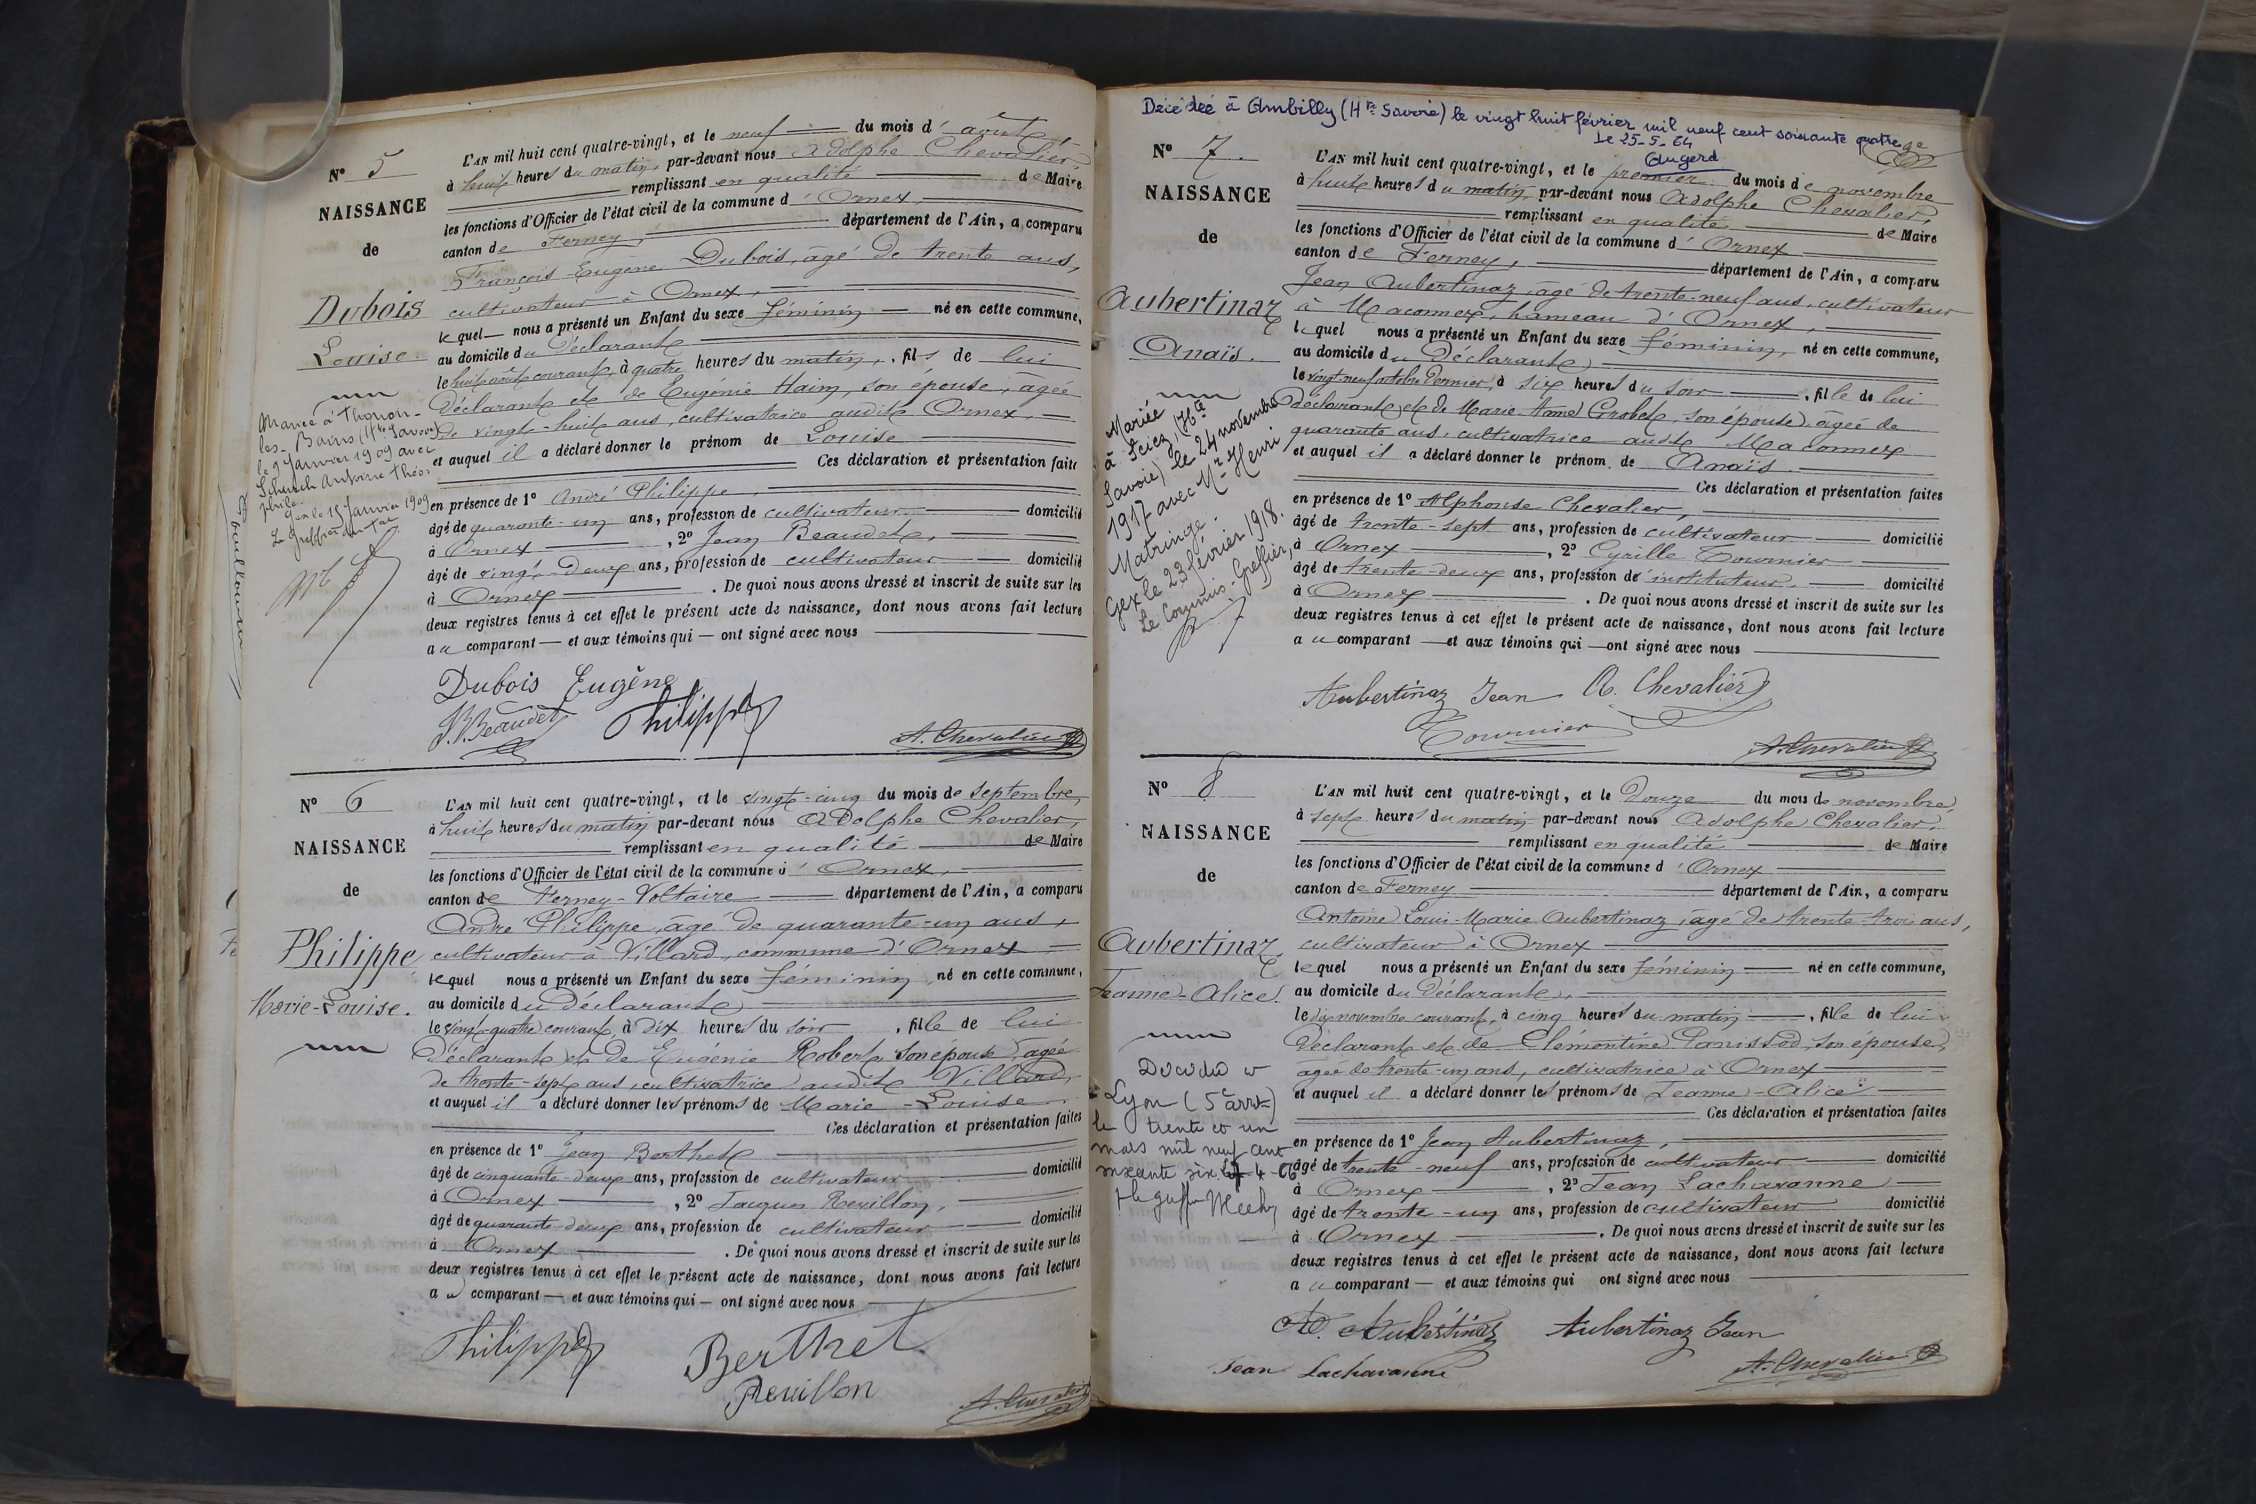 N° 5
NAISSANCE
de
Dubois
Louise
Mariée à Thonon-
les-Bains (Hte Savoie)
le 9 Janvier 1909 avec
Schurch Antoine Théo-
phile
Gex le 15 Janvier 1909
Le Greffier
L'AN mil huit cent quatre-vingt, et le neuf du mois d'août
à huit heures du matin, par-devant nous Adolphe Chevalier,
remplissant en qualité de Maire
les fonctions d'Officier de l'état civil de la commune d'Ornex,
canton de Ferney, département de l'Ain, a comparu
François Eugène Dubois, âgé de trente ans,
cultivateur à Ornex,
lequel nous a présenté un Enfant du sexe féminin né en cette commune,
au domicile du Déclarant
le huit août courant, à quatre heures du matin, fils de lui
Déclarant et de Eugénie Haim, son épouse, âgée
de vingt-huit ans, cultivatrice audit Ornex,
et auquel il a déclaré donner le prénom de Louise
Ces déclaration et présentation faite
en présence de 1° André Philippe,
âgé de quarante-un ans, profession de cultivateur domicilié
à Ornex, 2° Jean Beaudet,
âgé de vingt-deux ans, profession de cultivateur domicilié
à Ornex. De quoi nous avons dressé et inscrit de suite sur les
deux registres tenus à cet effet le présent acte de naissance, dont nous avons fait lecture
au comparant et aux témoins qui ont signé avec nous
Dubois Eugène
Beaudet Philippe
A. Chevalier
N° 6
NAISSANCE
de
Philippe
Marie-Louise.
L'AN mil huit cent quatre-vingt, et le vingt-cinq du mois de septembre,
à huit heures du matin par-devant nous Adolphe Chevalier,
remplissant en qualité de Maire
les fonctions d'Officier de l'état civil de la commune d'Ornex,
canton de Ferney-Voltaire département de l'Ain, a comparu
André Philippe, âgé de quarante-un ans,
cultivateur à Villard, commune d'Ornex
lequel nous a présenté un Enfant du sexe féminin, né en cette commune,
au domicile du Déclarant
le vingt-quatre courant, à dix heures du soir, fille de lui
Déclarant et de Eugénie Robert, son épouse, âgée
de trente-sept ans, cultivatrice audit Villard,
et auquel il a déclaré donner les prénoms de Marie-Louise
Ces déclaration et présentation faites
en présence de 1° Jean Berthet
âgé de cinquante-deux ans, profession de cultivateur domicilié
à Ornex, 2° Jacques Revillon,
âgé de quarante-deux ans, profession de cultivateur domicilié
à Ornex. De quoi nous avons dressé et inscrit de suite sur les
deux registres tenus à cet effet le présent acte de naissance, dont nous avons fait lecture
au comparant et aux témoins qui ont signé avec nous
Philippe Berthet
Revillon
A. Chevalier
Décédée à Ambilly (Hte Savoie) le vingt huit février mil neuf cent soixante quatre
Le 25-5-64
N° 7.
NAISSANCE
de
Aubertinaz
Anaïs.
Mariée
à Sciez (Hte
Savoie) le 24 novembre
1917 avec Mr Henri
Matringe.
Gex le 23 février 1918.
Le Commis Greffier,
L'AN mil huit cent quatre-vingt, et le premier du mois de novembre
à huit heures du matin, par-devant nous Adolphe Chevalier,
remplissant en qualité de Maire
les fonctions d'Officier de l'état civil de la commune d'Ornex
canton de Ferney, département de l'Ain, a comparu
Jean Aubertinaz, âgé de trente-neuf ans, cultivateur
à Maconnex, hameau d'Ornex,
lequel nous a présenté un Enfant du sexe féminin, né en cette commune,
au domicile du Déclarant
le vingt-neuf octobre dernier, à six heures du soir, fille de lui
déclarant et de Marie Grobet, son épouse, âgée de
quarante ans, cultivatrice audit Maconnex
et auquel il a déclaré donner le prénom de Anaïs
Ces déclaration et présentation faites
en présence de 1° Alphonse Chevalier,
âgé de trente-sept ans, profession de cultivateur domicilié
à Ornex, 2° Cyrille Tournier
âgé de trente-deux ans, profession de instituteur domicilié
à Ornex. De quoi nous avons dressé et inscrit de suite sur les
deux registres tenus à cet effet le présent acte de naissance, dont nous avons fait lecture
au comparant et aux témoins qui ont signé avec nous
Aubertinaz Jean A. Chevalier
Tournier
A. Chevalier
N° 8
NAISSANCE
de
Aubertinaz
Jeanne-Alice.
Décédée à
Lyon (5 arrt)
le trente et un
mars mil neuf cent
soixante six
L'AN mil huit cent quatre-vingt, et le Douze du mois de novembre,
à sept heures du matin par-devant nous Adolphe Chevalier,
remplissant en qualité de Maire
les fonctions d'Officier de l'état civil de la commune d'Ornex
canton de Ferney département de l'Ain, a comparu
Antoine Louis Marie Aubertinaz, âgé de trente-trois ans,
cultivateur à Ornex
lequel nous a présenté un Enfant du sexe féminin né en cette commune,
au domicile du Déclarant,
le dix novembre courant, à cinq heures du matin, fille de lui
Déclarant et de Clémentine Panissod, son épouse,
âgée de trente-un ans, cultivatrice à Ornex
et auquel il a déclaré donner les prénoms de Jeanne-Alice
Ces déclaration et présentation faites
en présence de 1° Jean Aubertinaz,
âgé de trente-neuf ans, profession de cultivateur domicilié
à Ornex, 2° Jean Lachavanne
âgé de trente-un ans, profession de cultivateur domicilié
à Ornex. De quoi nous avons dressé et inscrit de suite sur les
deux registres tenus à cet effet le présent acte de naissance, dont nous avons fait lecture
au comparant et aux témoins qui ont signé avec nous
A. Aubertinaz Aubertinaz Jean
Jean Lachavanne
A. Chevalier